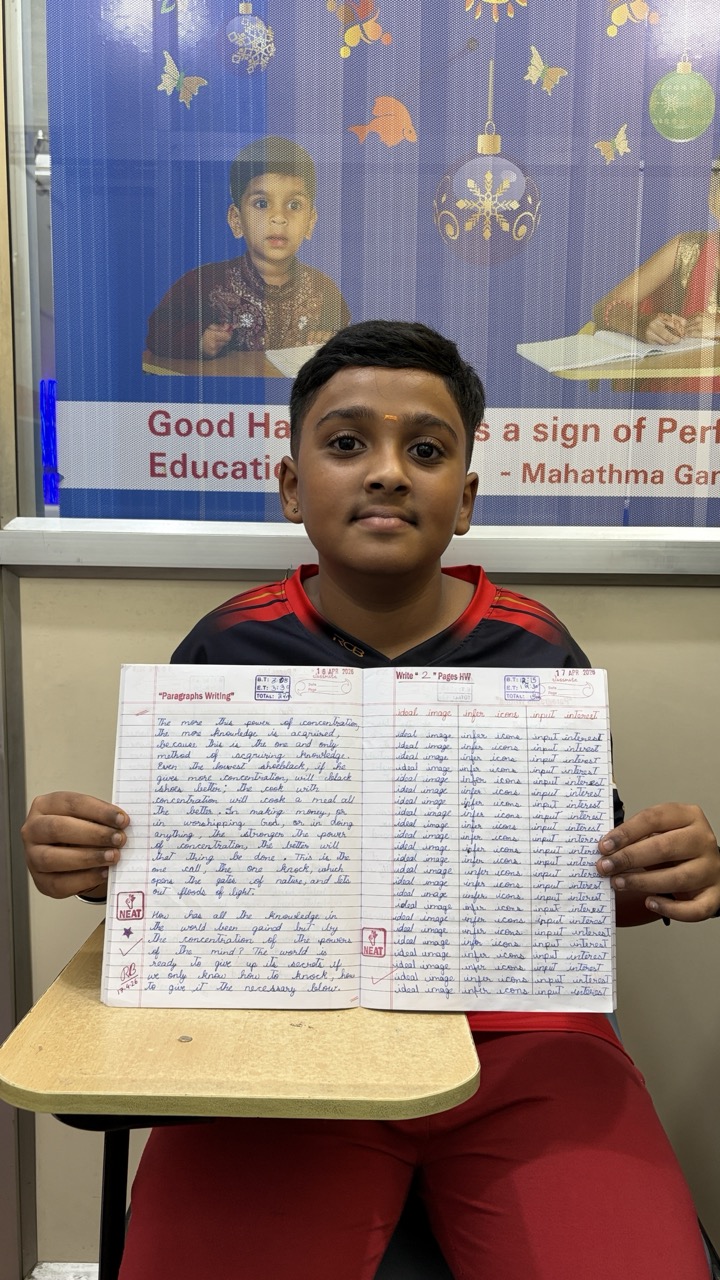 Good Ha s a sign of Perf
Educatio - Mahathma Gan
RCB
16 APR 2026
classmate
"Paragraphs Writing"
B.T:
E.T:
TOTAL:
The more this power of concentration,
the more knowledge is acquired,
because this is the one and only
method of acquring knowledge.
Even the lowest shoeblack, if he
gives more concentration, will black
shoes better; the cook with
concentration will cook a meal all
the better. In making money, or
in worshipping God, or in doing
anything, the stronger the power
of concentration, the better will
that thing be done. This is the
one call, the one knock, which
opens the gates of nature, and lets
out floods of light.
How has all the knowledge in
the world been gained but by
the concentration of the powers
of the mind? The world is
ready to give up its secrets if
we only know how to knock, how
to give it the necessary blow.
NEAT
17 APR 2026
classmate
Write "2" Pages HW
B.T:
E.T:
TOTAL:
ideal image infer icons input interest
ideal image infer icons input interest
ideal image infer icons input interest
ideal image infer icons input interest
ideal image infer icons input interest
ideal image infer icons input interest
ideal image infer icons input interest
ideal image infer icons input interest
ideal image infer icons input interest
ideal image infer icons input interest
ideal image infer icons input interest
ideal image infer icons input interest
ideal image infer icons input interest
ideal image infer icons input interest
ideal image infer icons input interest
ideal image infer icons input interest
ideal image infer icons input interest
ideal image infer icons input interest
ideal image infer icons input interest
ideal image infer icons input interest
ideal image infer icons input interest
ideal image infer icons input interest
ideal image infer icons input interest
ideal image infer icons input interest
NEAT